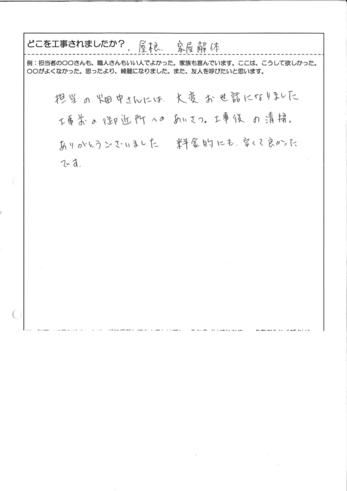 どこを工事されましたか? 屋根 家屋解体
例:担当者の〇〇さんも、職人さんもいい人でよかった。家族も喜んでいます。ここは、こうして欲しかった。
〇〇がよくなかった。思ったより、綺麗になりました。また、友人を呼びたいと思います。
担当の畑中さんには 大変お世話になりました
工事前の御近所へのあいさつ。工事後の清掃。
ありがとうございました 料金的にも 安くて良かった
です。